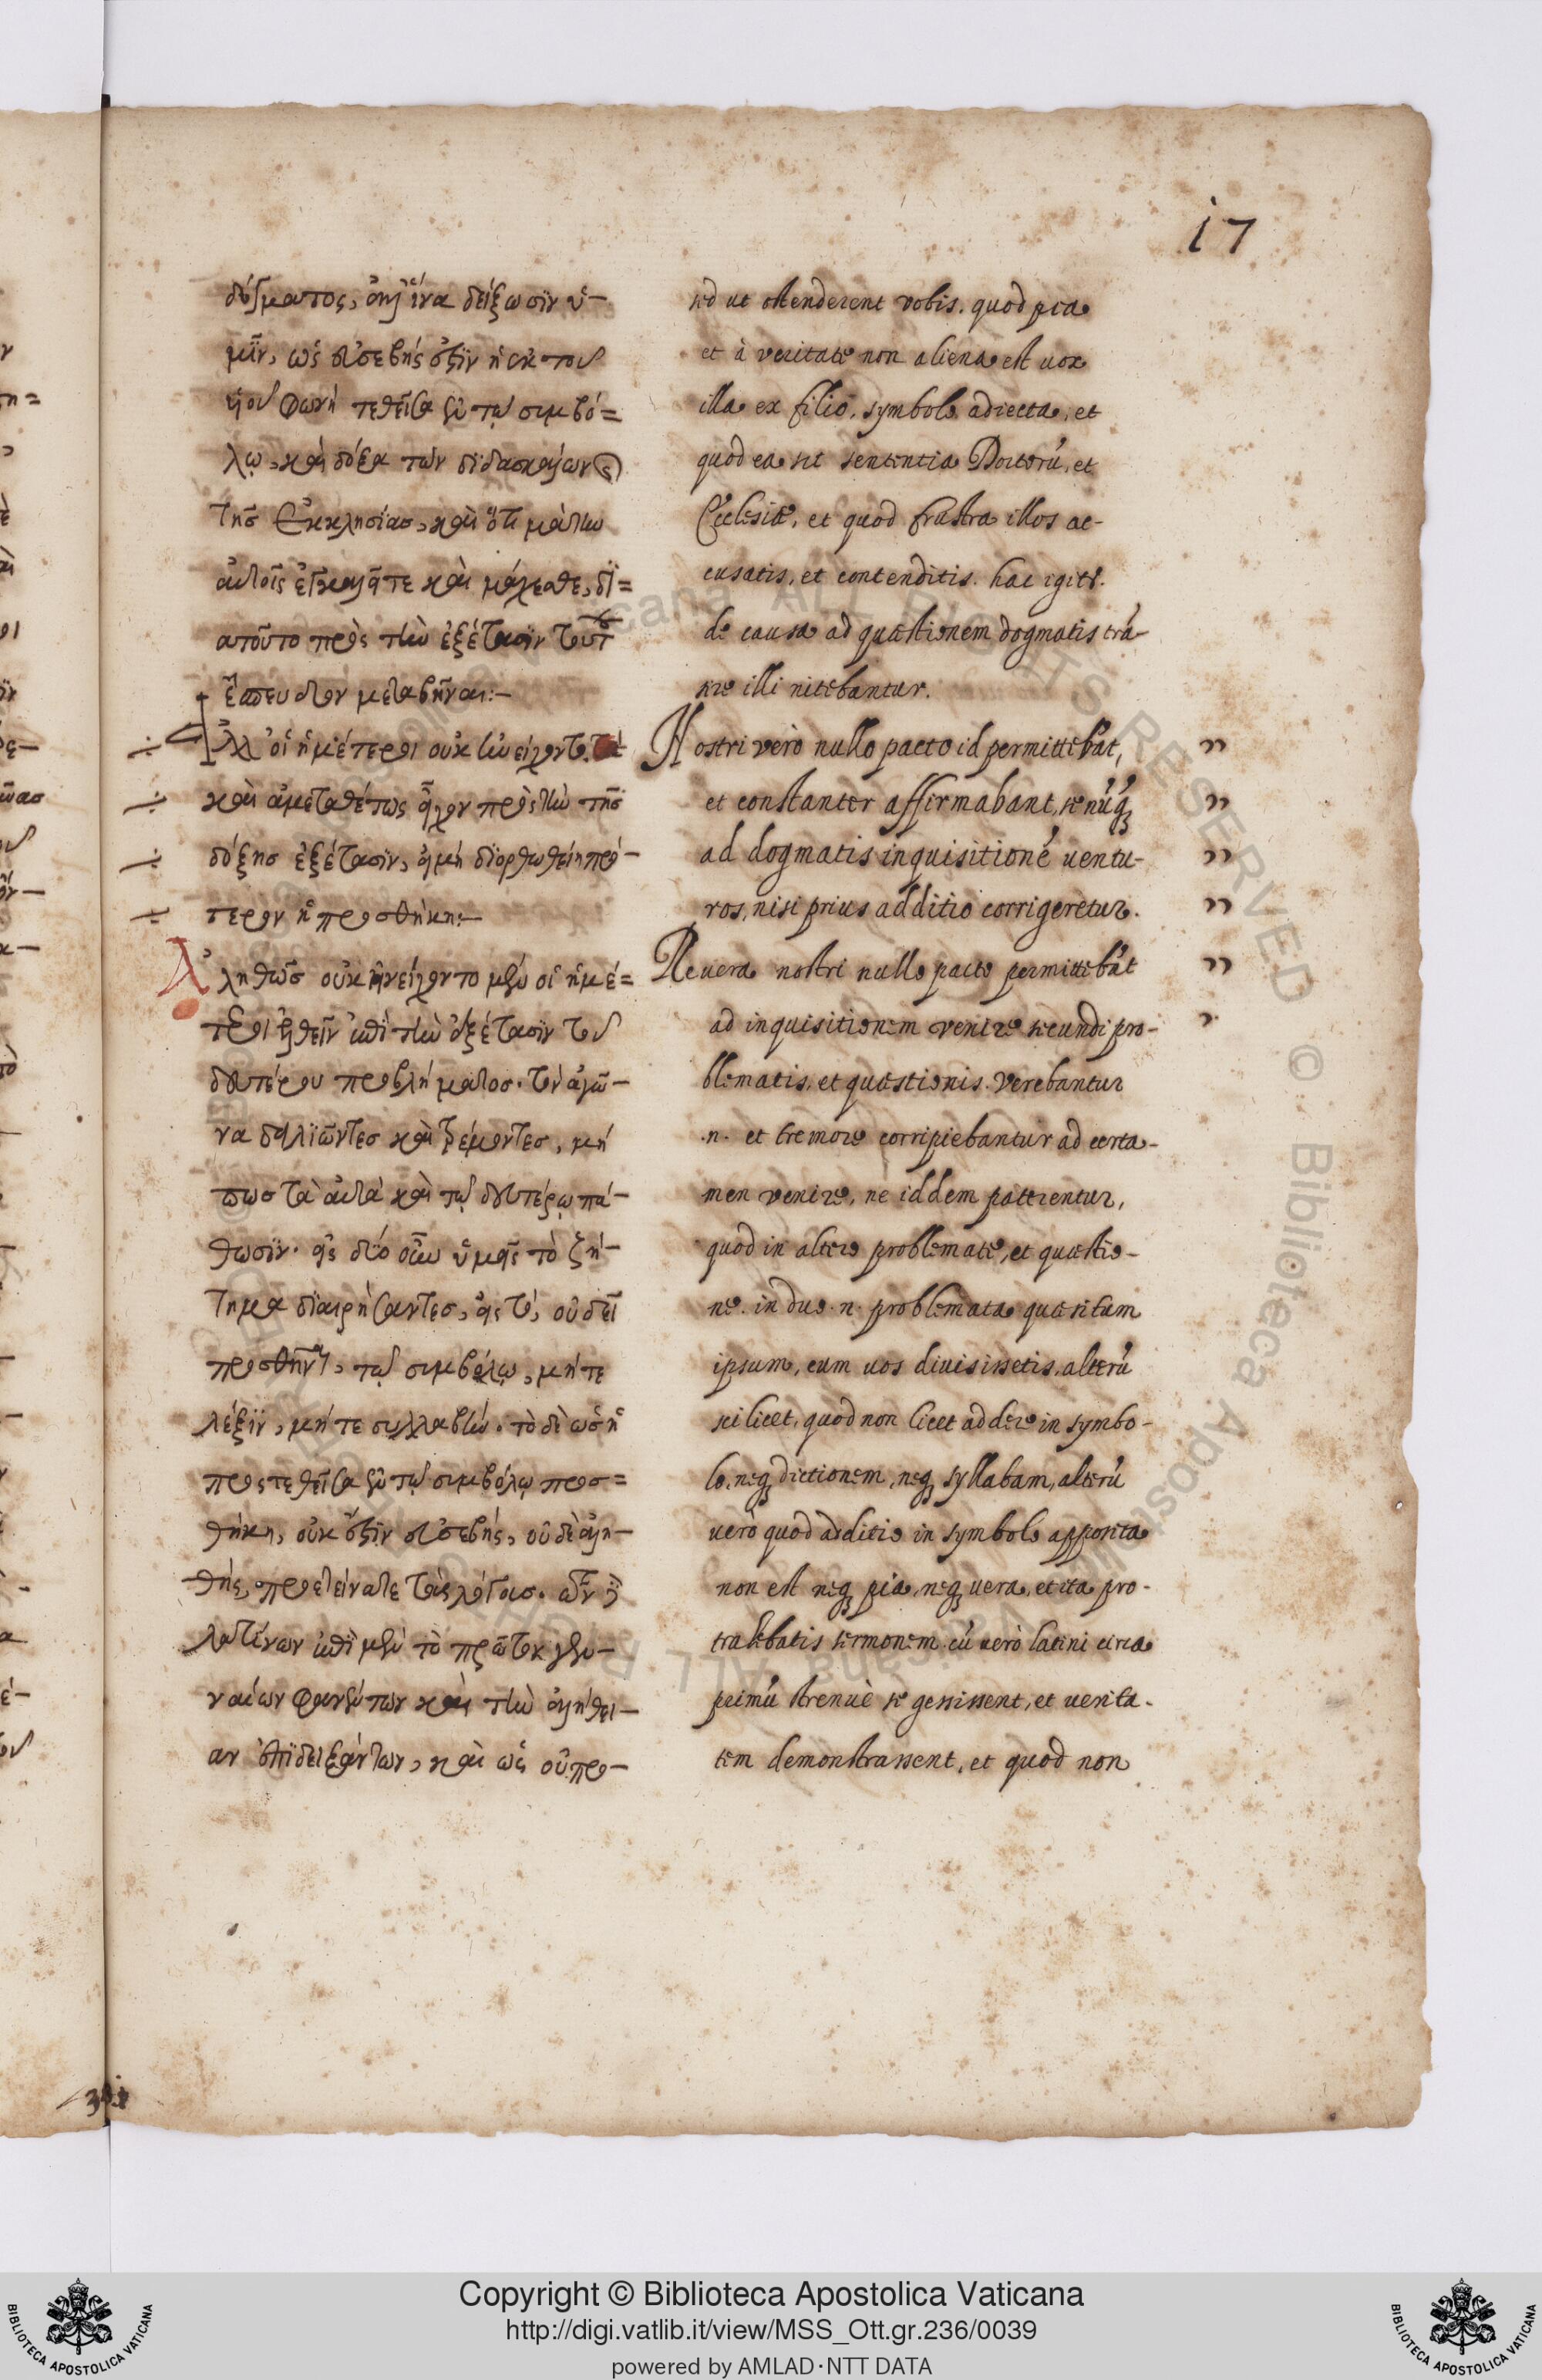 17
δόγματος, ἀλλ' ἵνα δείξωσϊν ὑ-
μῖν, ὡς εὐσεβής ἐστϊν ἡ ἐκ τοῦ
ϋἱοῦ φωνή τεθεῖσα ἐν τῷ συμβό=
λῳ, καὶ δόξα τῶν διδασκάλων
τῆς Ἐκκλησίας, καὶ ὅτι μάτην
αὐτοῖς ἐγκαλεῖτε καὶ μάχεσθε, δϊ=
ατοῦτο πρὸς τὴν ἐξέτασϊν τούτ
ἔσπευδον μεταβῆναι:-
Ἀλλ' οἱ ἡμέτεροι οὐκ ἠνείχοντο.
καὶ ἀμεταθέτως εἶχον πρὸς τὴν τῆς
δόξης ἐξέτασϊν, εἰ μή διορθωθείη πρό-
τερον ἡ προσθήκη:-
Ἀληθῶς οὐκ ἠνείχοντο μὲν οἱ ἡμέ=
τεροι ἐλθεῖν ἐπὶ τὴν ἐξέτασϊν τοῦ
δευτέρου προβλήματος. τὸν ἀγῶ-
να δειλϊῶντες καὶ τρέμοντες, μή
πως τὰ αὐτὰ καὶ τῷ δευτέρῳ πά-
θωσϊν. εἰς δύο οὖν ὑμεῖς τὸ ζή-
τημα διαιρήσαντες, εἴς τε, οὐ δεῖ
προσθεῖναι, τῷ συμβόλῳ, μήτε
λέξϊν, μήτε συλλαβήν. τὸ δὲ ὡς ἡ
προςτεθεῖσα ἐν τῷ συμβόλῳ προσ=
θήκη, οὐκ ἔστϊν εὐσεβής, οὐδὲ ἀλη-
θής, προετείνατε τοὺς λόγους. τῶν δὲ
λατίνων ἐπὶ μὲν τὸ πρῶτον γεν-
ναίων φανέντων καὶ τὴν ἀλήθει-
αν ἐπϊδειξάντων, καὶ ὡς οὐ προ-
sed ut ostenderent vobis. quod pia
et à veritate non aliena est uox
illa ex filio, symbolo adiecta, et
quod ea sit sententia Doctorū, et
Ecclesiæ, et quod frustra illos ac-
cusatis, et contenditis. hac igitr.
de causa ad quæstionem dogmatis trā-
sire illi nitebantur.
Nostri verò nullo pacto id permittebāt, ”
et constanter affirmabant, se nūq̄ ”
ad dogmatis inquisitionē uentu- ”
ros, nisi prius additio corrigeretur. ”
Reuera nostri nullo pacto permittebāt ”
ad inquisitionem venire secundi pro-
blematis, et quæstionis. verebantur
.n. et tremore corripiebantur ad certa-
men venire, ne iddem paterentur,
quod in altero problemate, et quæstio-
ne. in duo .n. problemata quæsitum
ipsum, cum uos diuisissetis, alterū
scilicet, quod non licet addere in symbo-
lo, neq; dictionem, neq; syllabam, alterū
uerò quod additio in symbolo apposita
non est neq; pia, neq; uera, et ita pro-
trahebatis sermonem. cū uerò latini circa
primū strenuè se gessissent, et uerita-
tem demonstrassent, et quod non
Copyright © Biblioteca Apostolica Vaticana
http://digi.vatlib.it/view/MSS_Ott.gr.236/0039
powered by AMLAD·NTT DATA